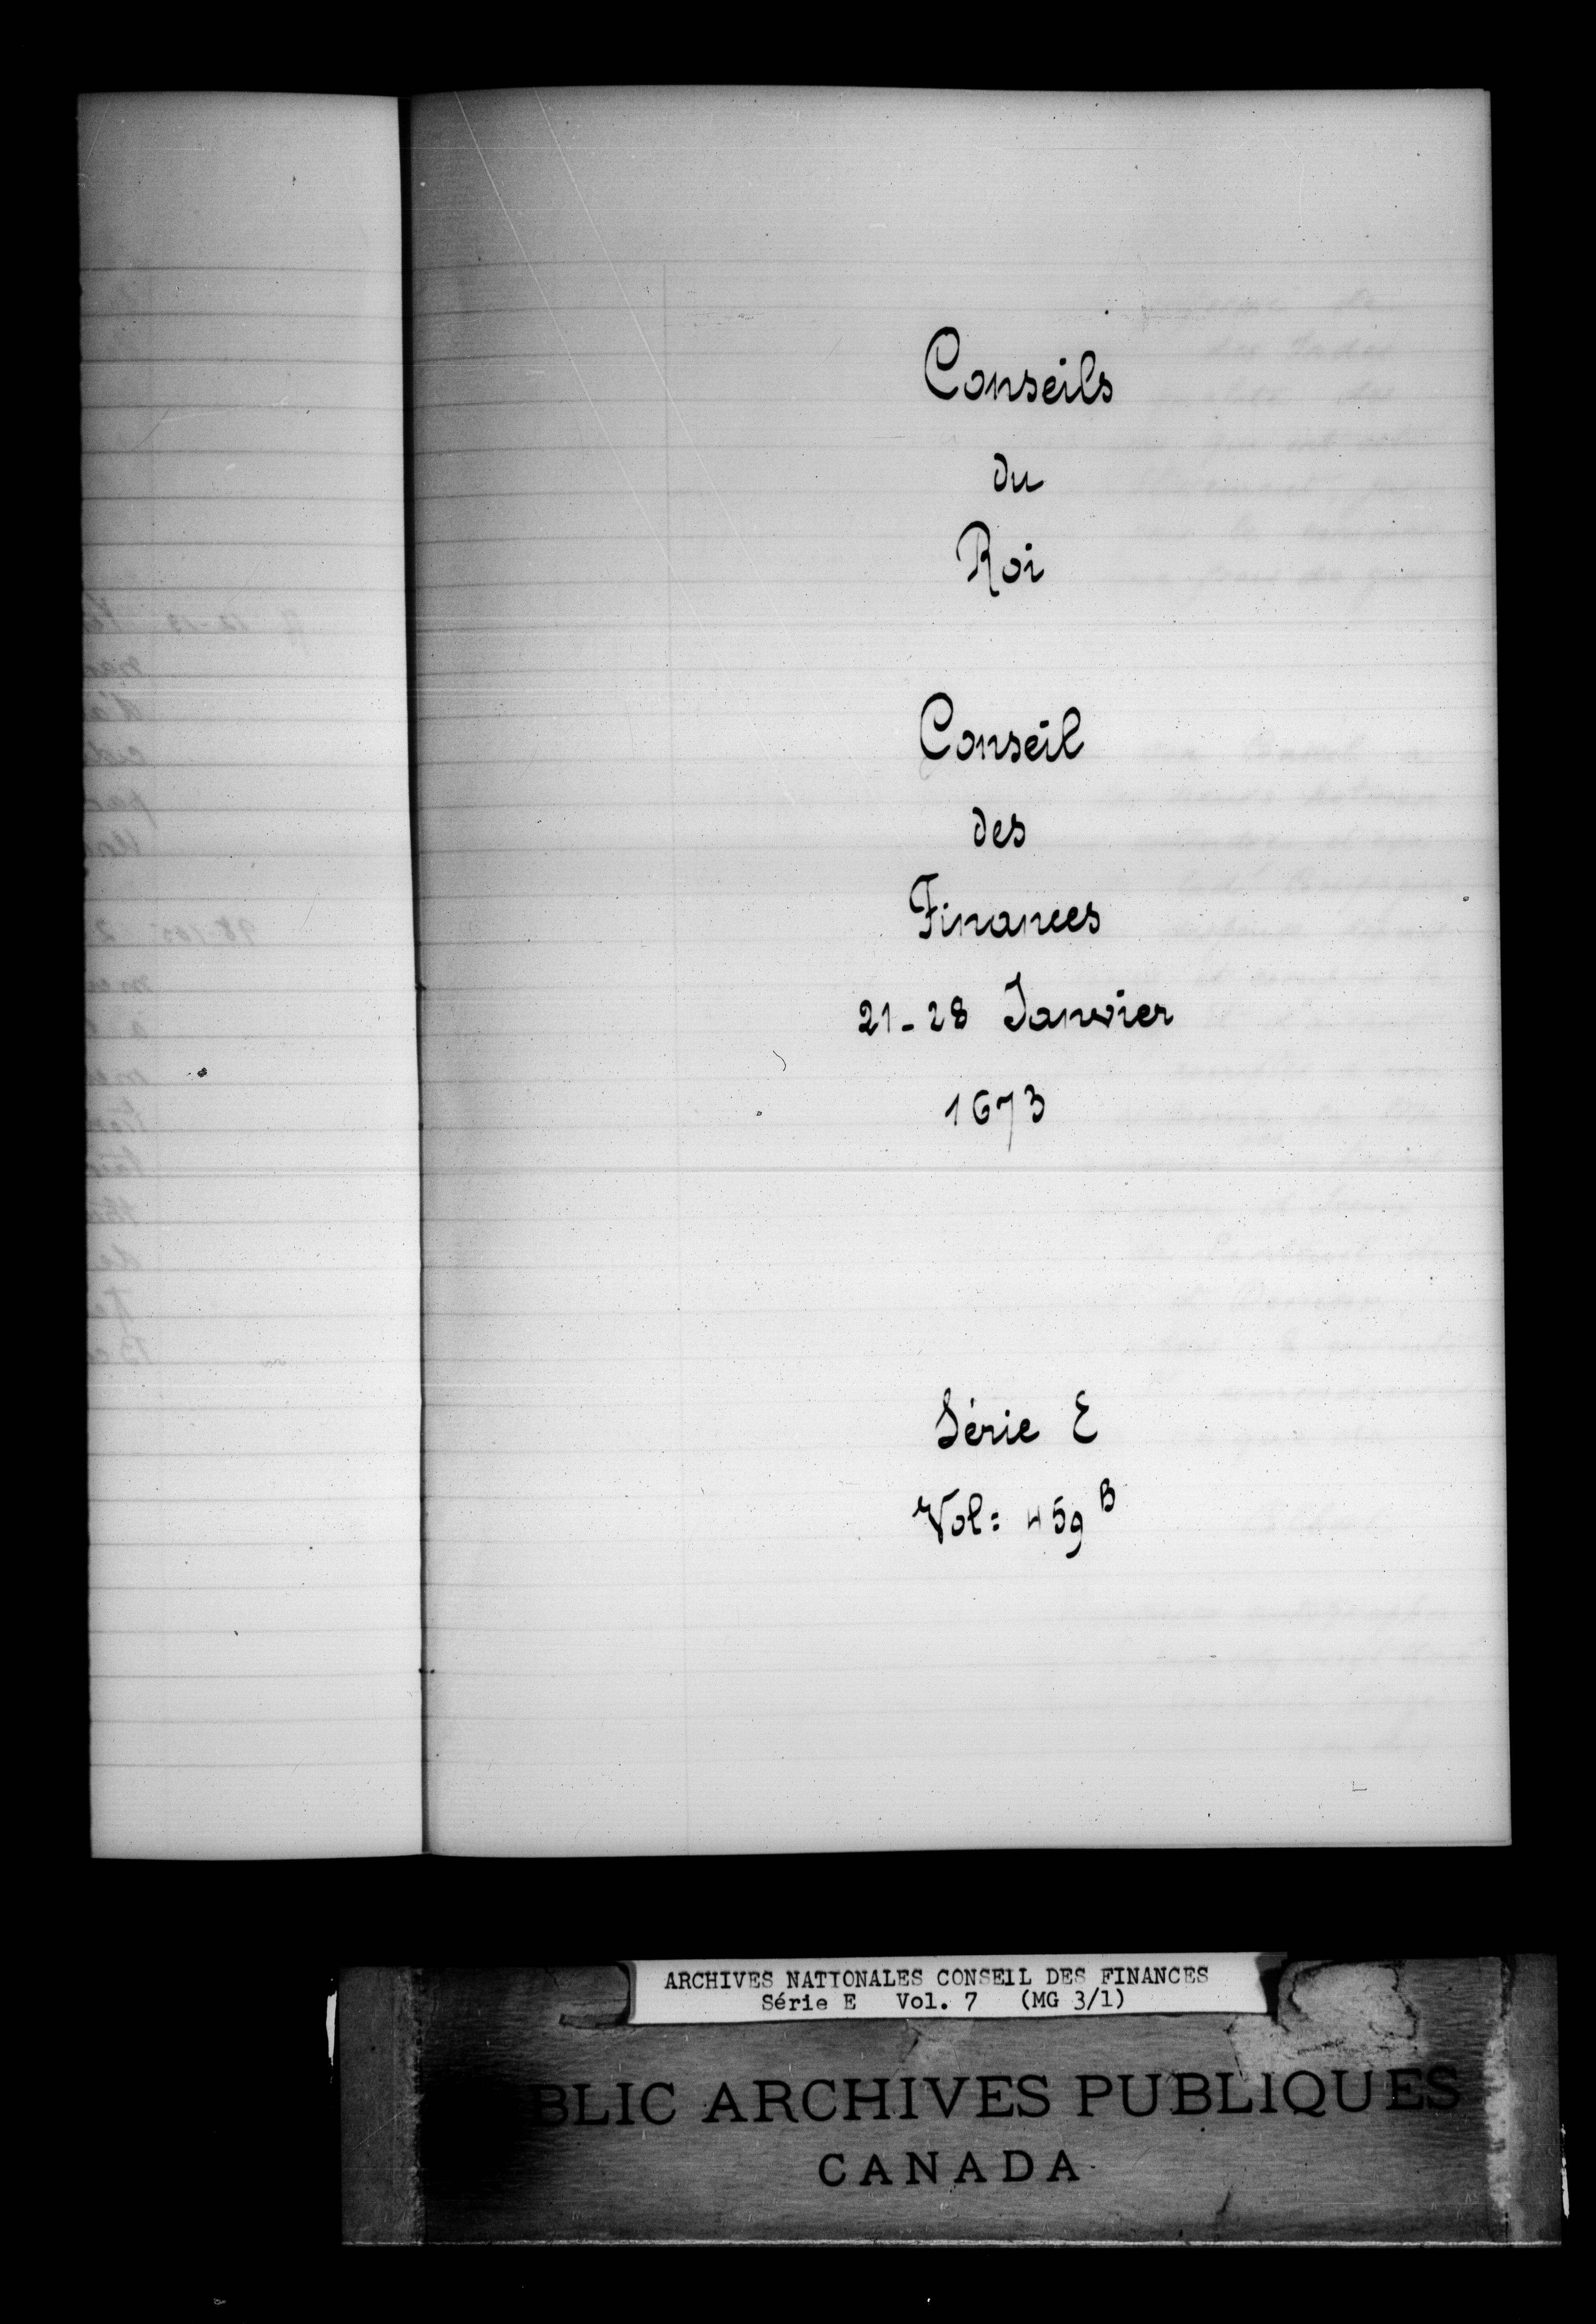 Conseils
du
Roi
Conseil
des
Finances
21-28 Janvier
1673
Série E
Vol: 459 B
ARCHIVES NATIONALES CONSEIL DES FINANCES
Série E Vol. 7 (MG 3/1)
BLIC ARCHIVES PUBLIQUES
CANADA